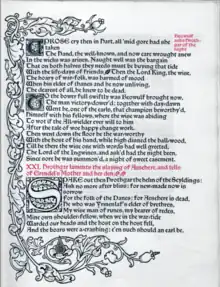 Beowulf
asks Hroth-
gar of the
night
UPROSE cry then in Hart, all 'mid gore had she
taken
The Hand, the well-known, and now care wrought anew
In the wicks was arisen. Naught well was the bargain
That on both halves they needs must be buying that tide
With the life-days of friends. Then the Lord King, the wise,
The hoary of war-folk, was harmed of mood
When his elder of thanes and he now unliving,
The dearest of all, he knew to be dead.
To the bower full swiftly was Beowulf brought now,
The man victory-dower'd; together with day-dawn
Went he, one of the earls, that champion beworthy'd,
Himself with his fellows, where the wise was abiding
To wot if the All-wielder ever will to him
After the tale of woe happy change work.
Then went down the floor he the war-worthy
With the host of his hand, while high dinned the hall-wood,
Till he there the wise one with words had well greeted,
The Lord of the Ingwines, and ask'd had the night been,
Since sore he was summon'd, a night of sweet easement.
XXI. Hrothgar laments the slaying of Aeschere, and tells
of Grendel's Mother and her den
SPAKE out then Hrothgar the helm of the Scyldings:
Ask no more after bliss; for new-made now is
sorrow
For the folk of the Danes; for Aeschere is dead,
He who was Yrmenlaf's elder of brethren,
My wise man of runes, my bearer of redes,
Mine own shoulder-fellow, when we in the war-tide
Warded our heads and the host on the host fell,
And the boars were a-crashing; e'en such should an earl be,